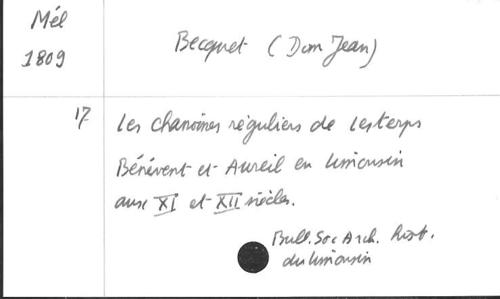 Mél
1809
Becquet (Dom Jean)
17 Les chanoines réguliers de Lesterps
Bénévent et Aureil en Limousin
aux XI et XII siècles.
Bull. Soc Arch. hist.
du limousin